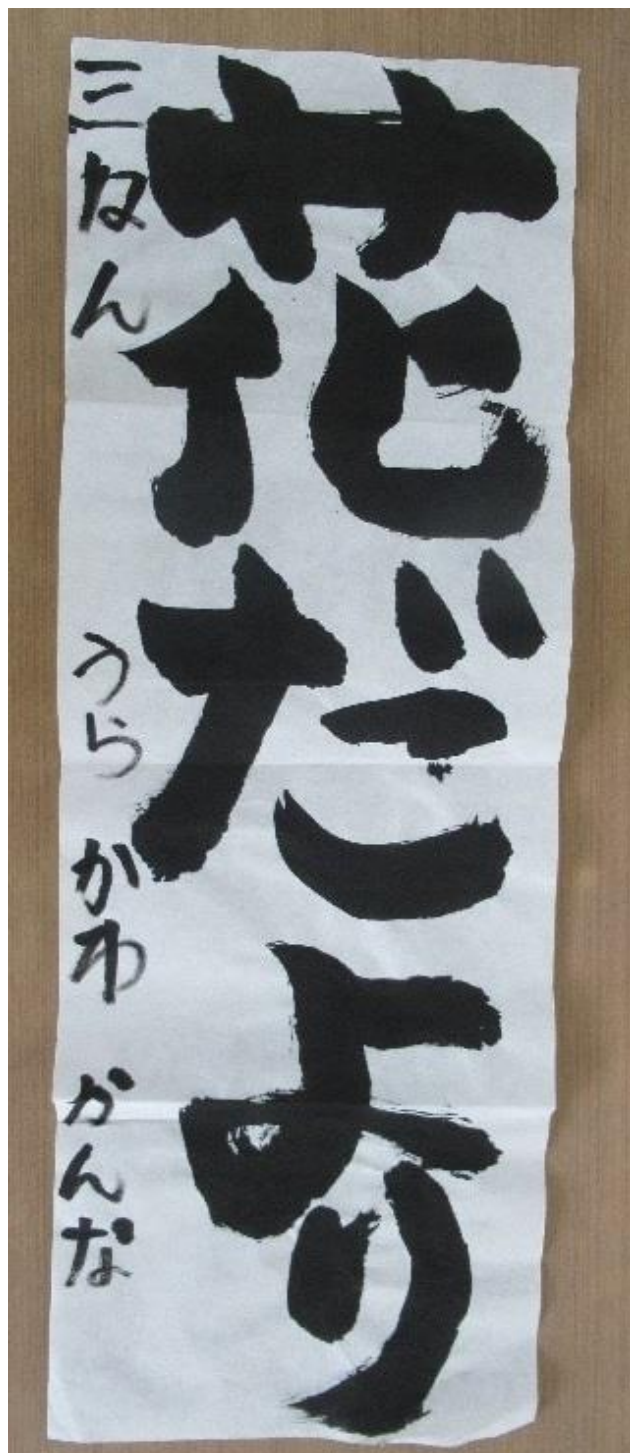 花だより
三ねん うらかわ かんな